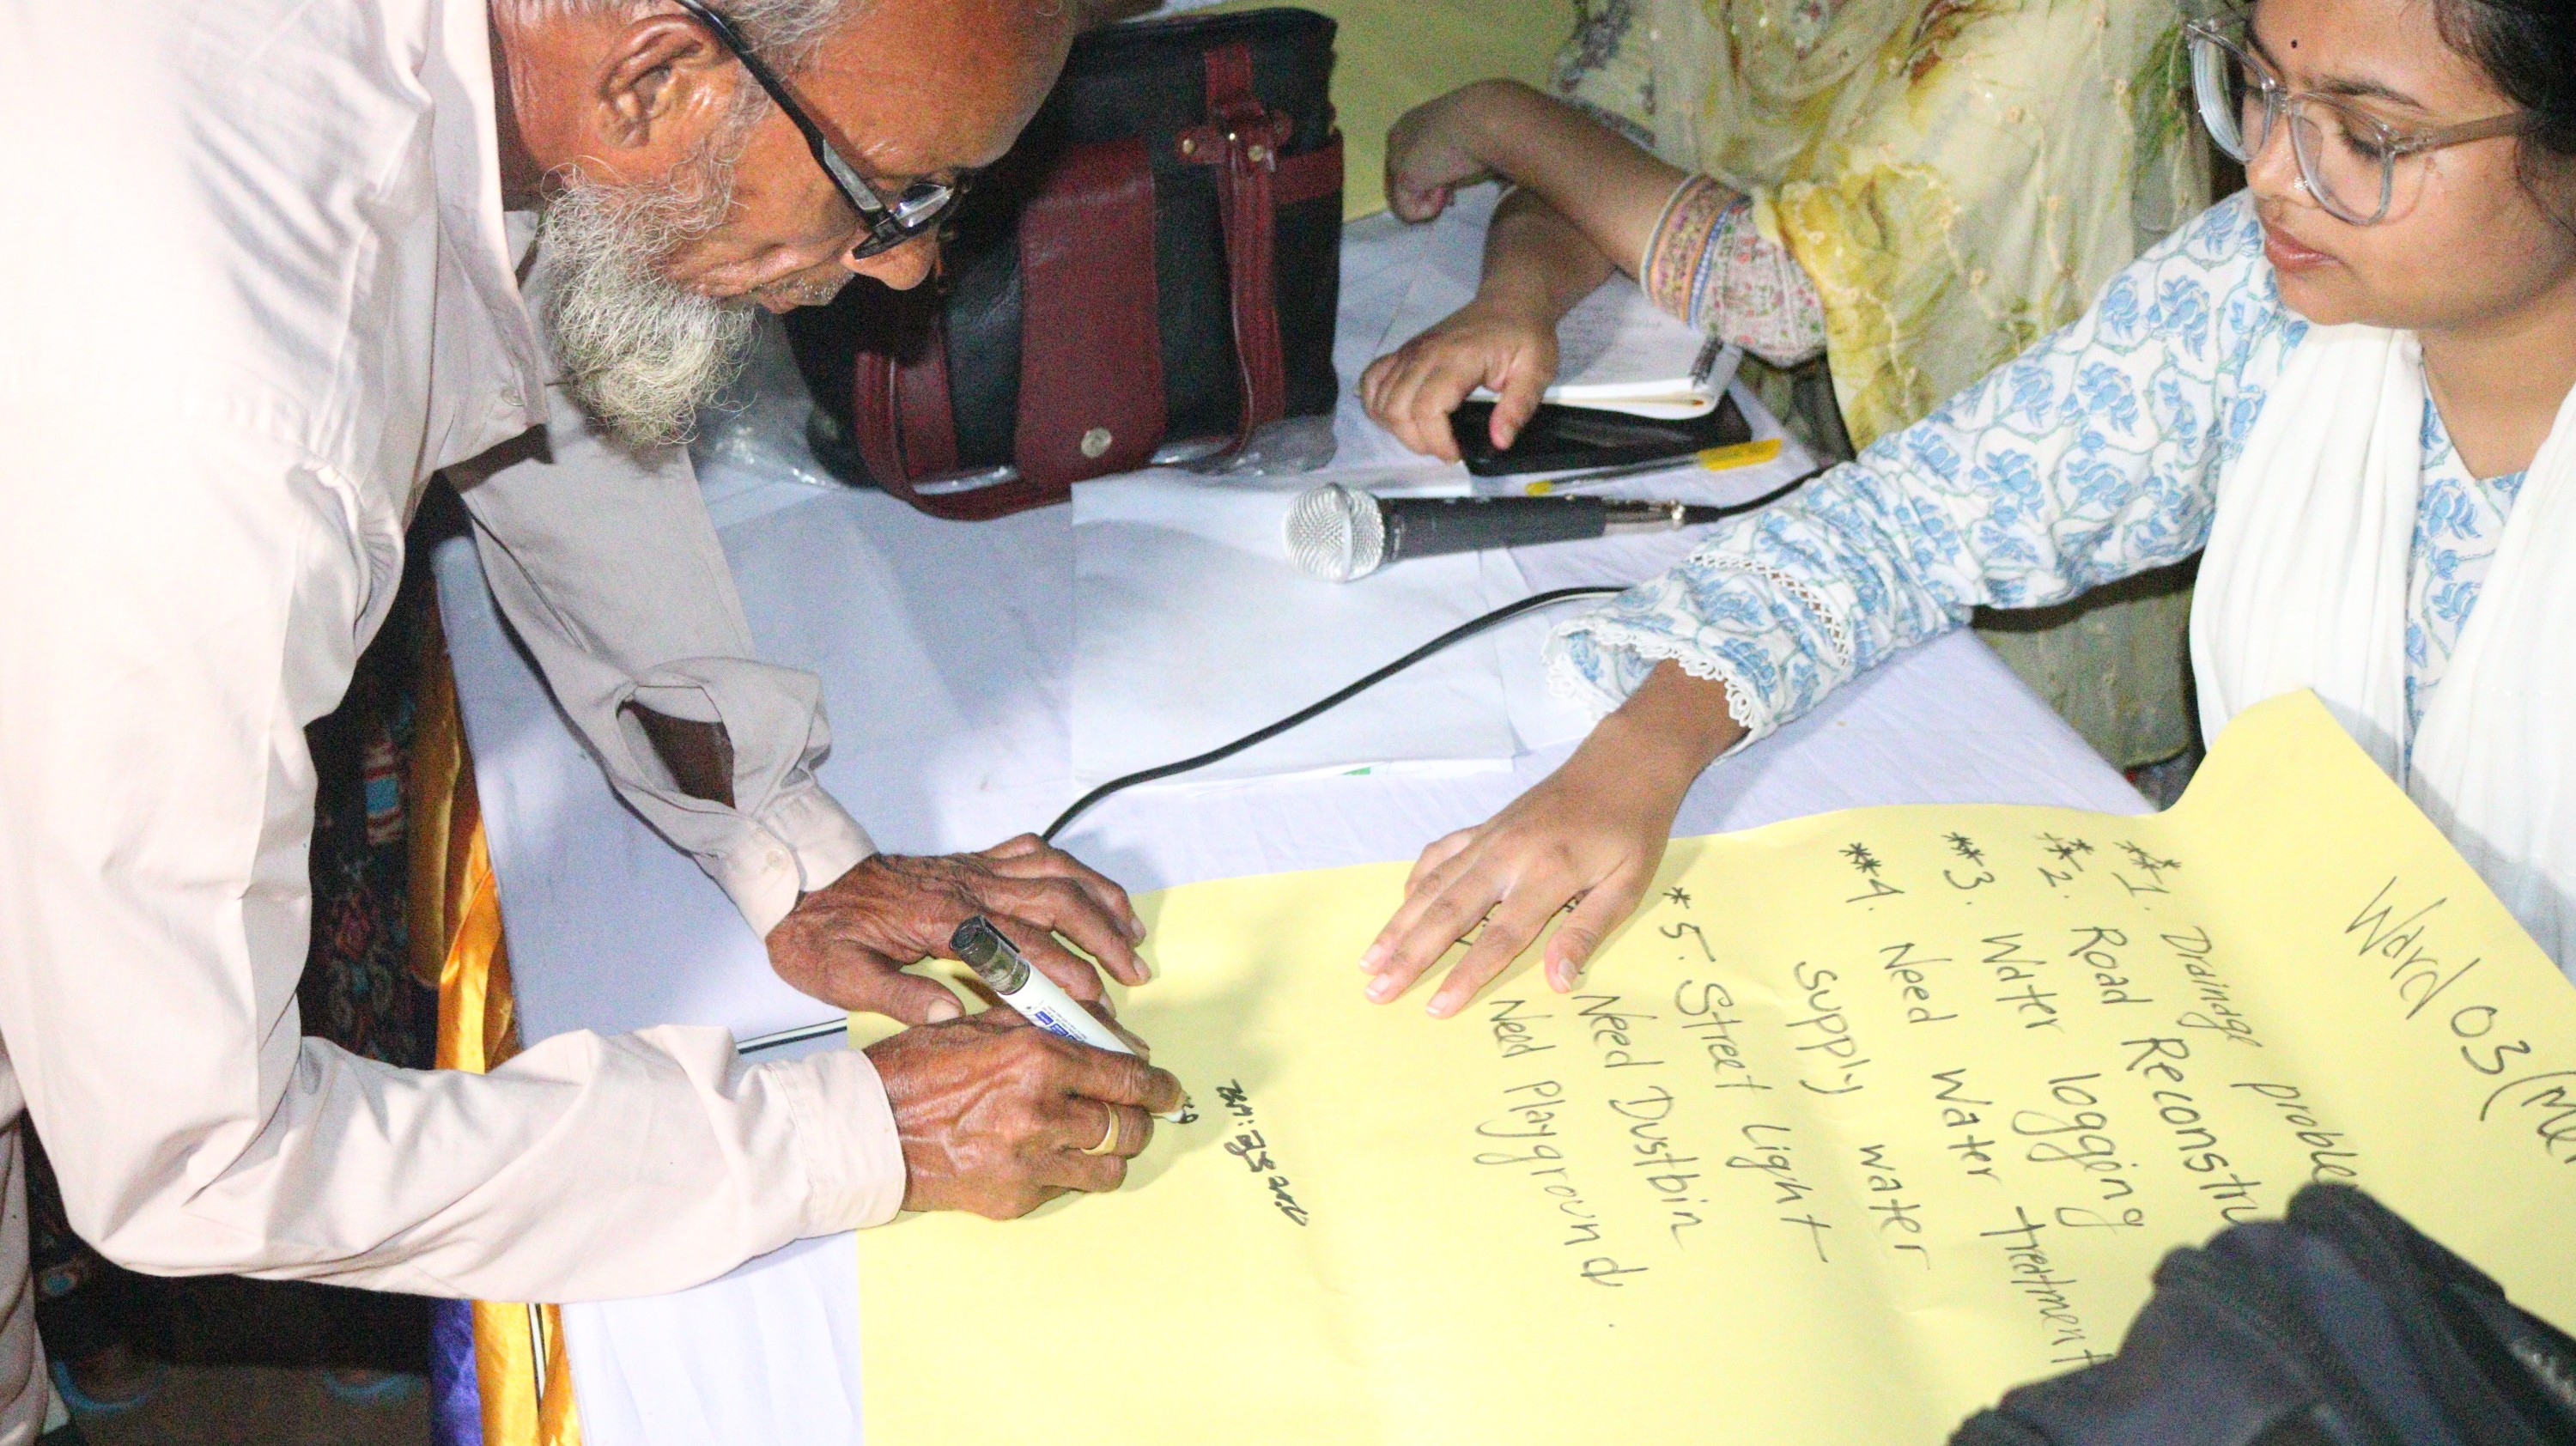 Ward 03
**1. Drainage problem
**2. Road Reconstru
**3. Water logging
**4. Need Water treatment
supply water
*5. Street Light
Need Dustbin
Need Playground.